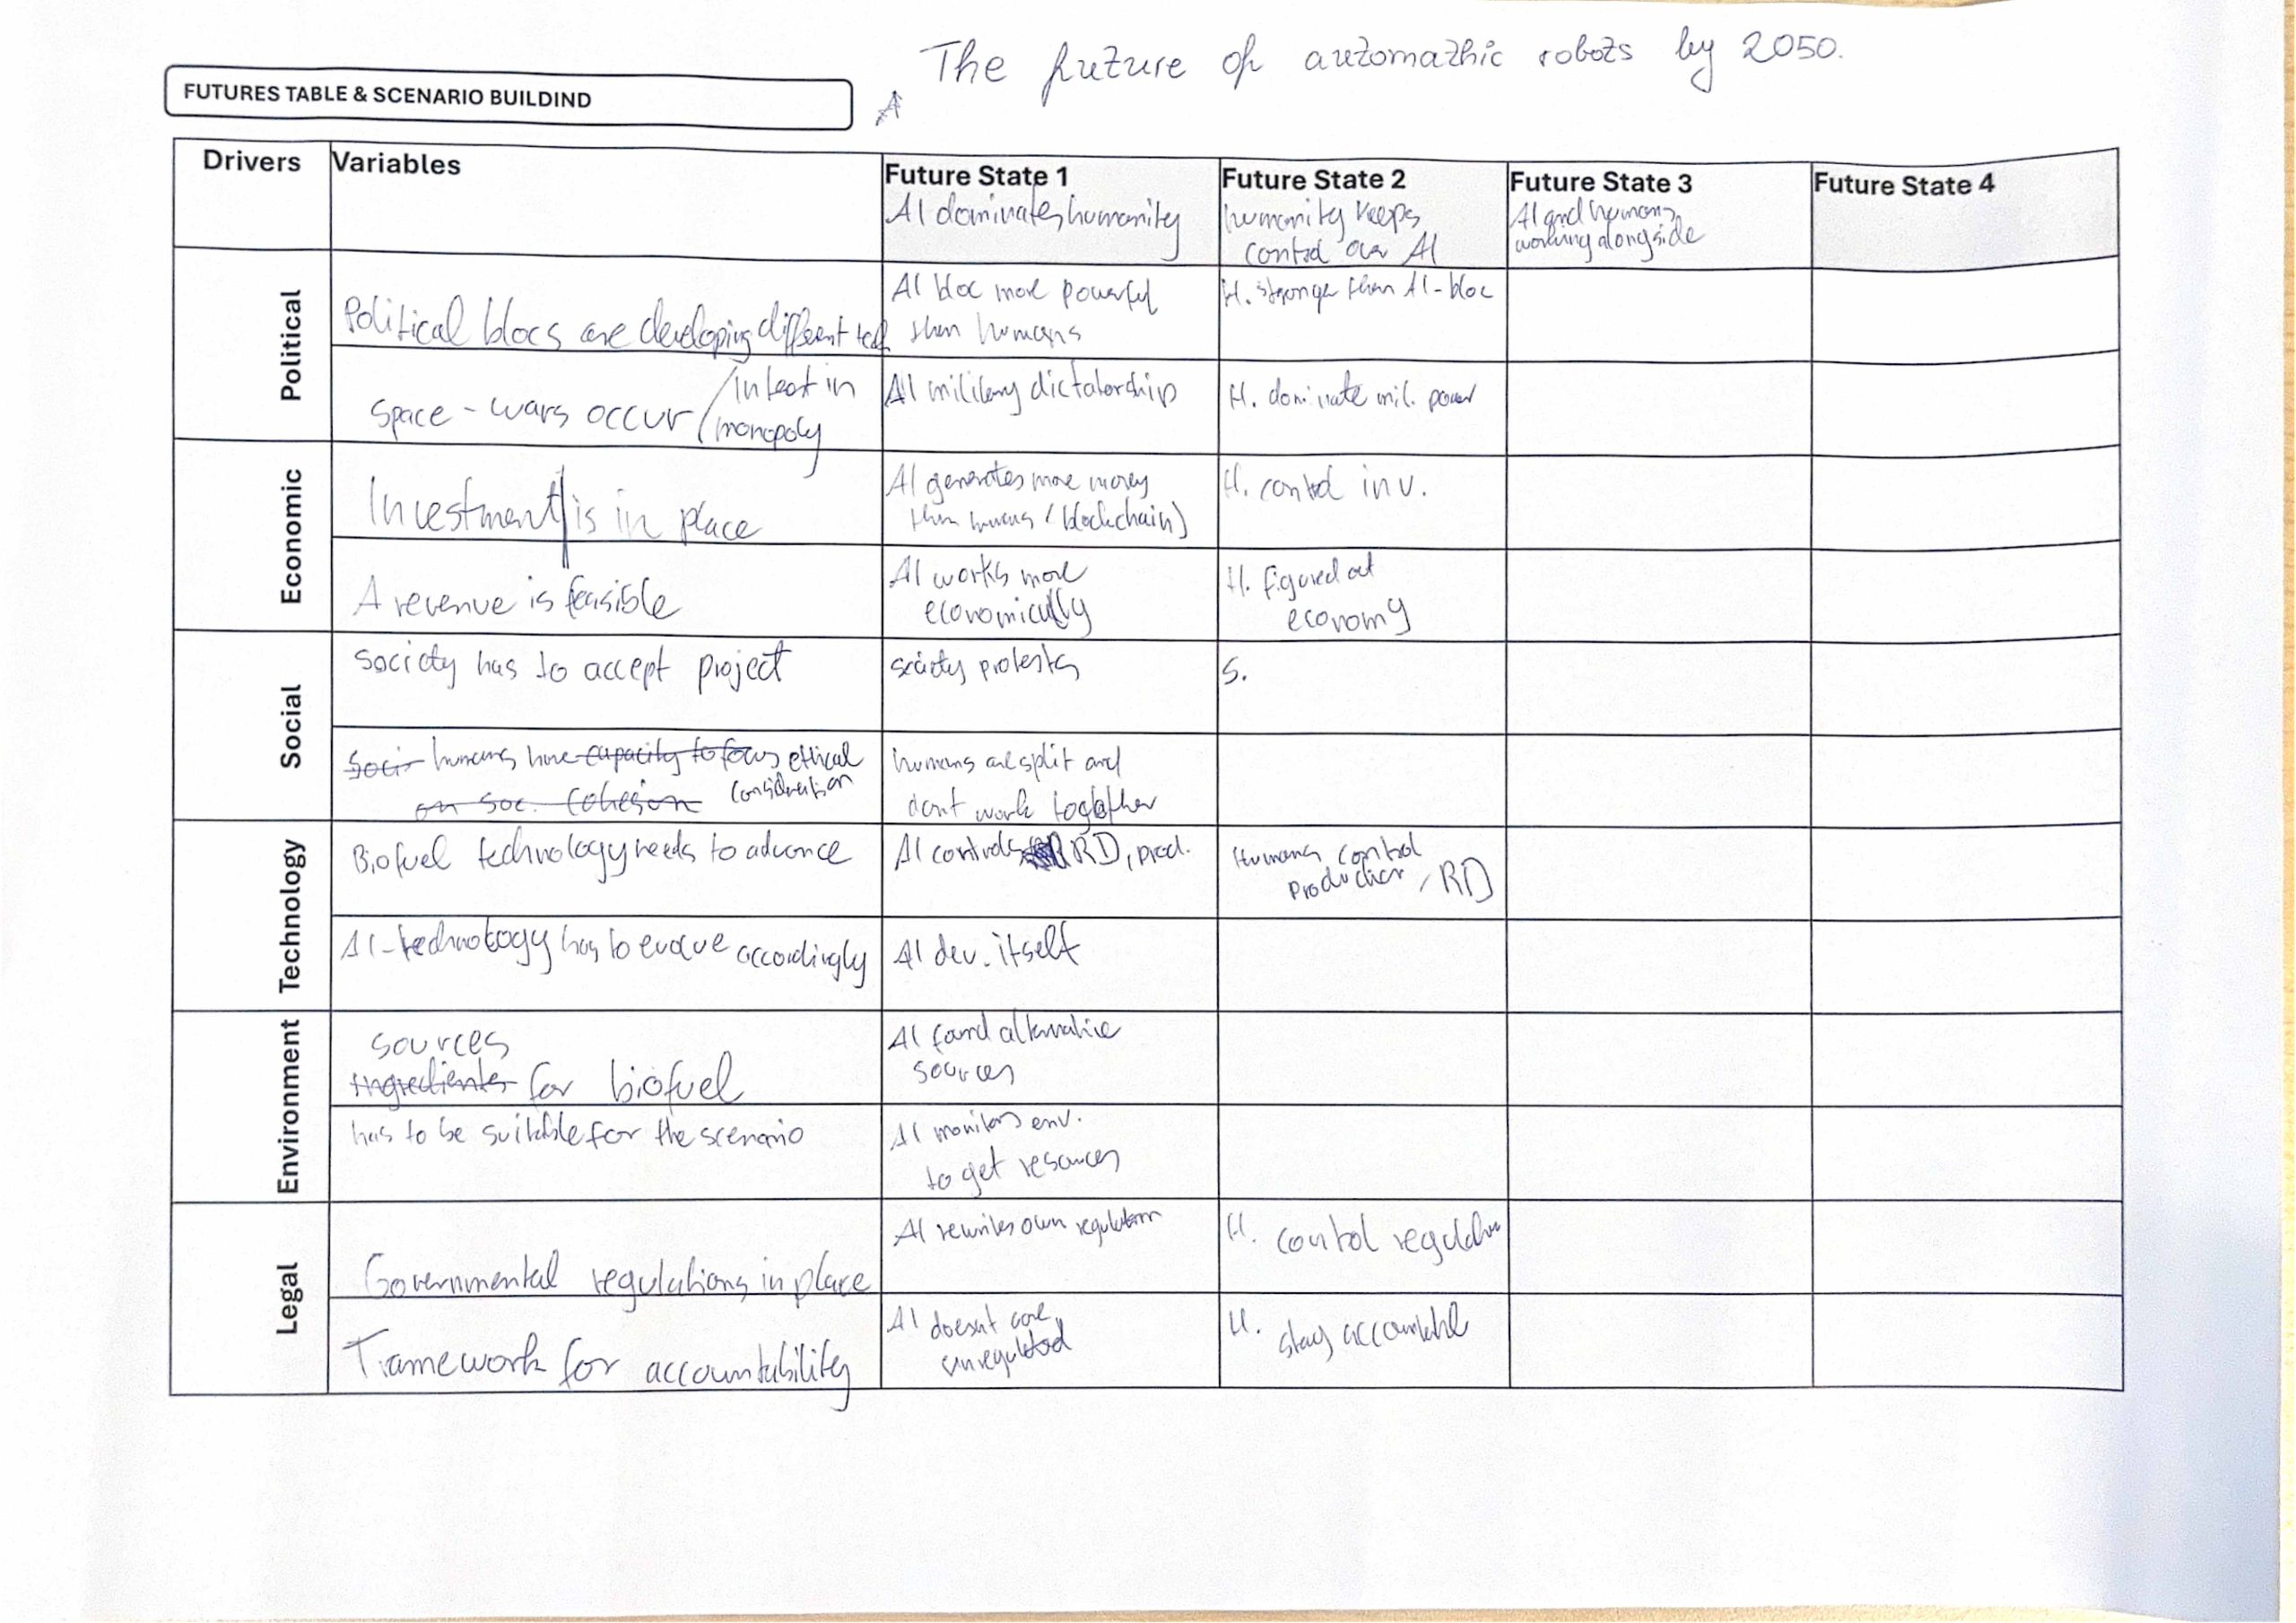 The future of automathic robots by 2050.
FUTURES TABLE & SCENARIO BUILDIND
A
Drivers
Variables
Future State 1
AI dominates humanity
Future State 2
humanity keeps
control over AI
Future State 3
AI and humans
working alongside
Future State 4
Political
Political blocs are developing different tech
AI bloc more powerful
then humans
H. stronger then AI-bloc
space-wars occur / intent in
monopoly
AI military dictatorship
H. dominate mil. power
Economic
Investment is in place
AI generates more money
then humans (blockchain)
H. control inv.
A revenue is feasible
AI works more
economically
H. figured out
economy
Social
Society has to accept project
society protests
S.
Socis humans have capacity to focus ethical
on soc. cohesion consideration
humans are split and
dont work together
Technology
Biofuel technology needs to advance
AI controls RD, prod.
Humans control
production, RD
AI-technology has to evolve accordingly
AI dev. itself
Environment
sources
Ingredients for biofuel
AI found alternative
sources
has to be suitable for the scenario
AI monitors env.
to get resources
Legal
Governmental regulations in place
AI rewrites own regulation
H. control regulation
Framework for accountability
AI doesnt care,
unregulated
H. stay accountable